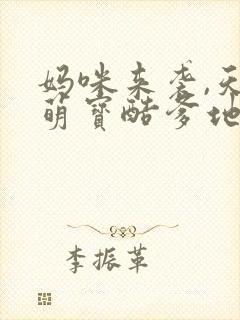 妈咪来袭,天
萌宝酷爹地
李振革